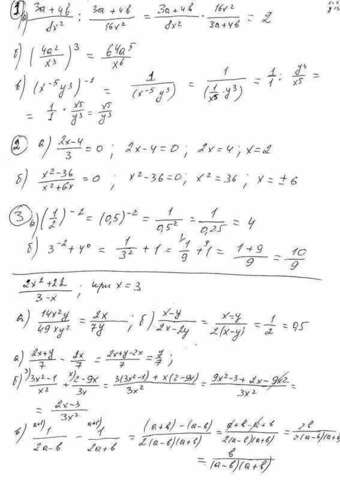 1) а) 3a+4b/8x² : 3a+4b/16x² = 3a+4b/8x² · 16x²/3a+4b = 2
б) (4a²/x³)³ = 64a⁵/x⁶
в) (x⁻⁵y³)⁻¹ = 1/(x⁻⁵y³) = 1/(1/x⁵ y³) = 1/1 : y³/x⁵ =
= 1/1 · x⁵/y³ = x⁵/y³
2 а) 2x-4/3 = 0 ; 2x-4=0 ; 2x=4 ; x=2
б) x²-36/x²+6x = 0 ; x²-36=0 ; x²=36 ; x=±6
3 а) (1/2)⁻² = (0,5)⁻² = 1/0,5² = 1/0,25 = 4
б) 3⁻² + 4⁰ = 1/3² + 1 = 1/9 + 1 = 1+9/9 = 10/9
; при x=3
а) 14x²y/49xy² = 2x/7y ; б) x-y/2x-2y = x-y/2(x-y) = 1/2 = 0,5
а) 2x+y/7 - 2x/7 = 2x+y-2x/7 = y/7 ;
б) 3x²-1/x² + 2-9x/3x = 3(3x²-1)+x(2-9x)/3x² = 9x²-3+2x-9x²/3x² =
= 2x-3/3x²
в) 1/2a-b - 1/2a+b = (a+b)-(a-b)/2(a-b)(a+b) = a+b-a+b/2(a-b)(a+b) =
= b/(a-b)(a+b)